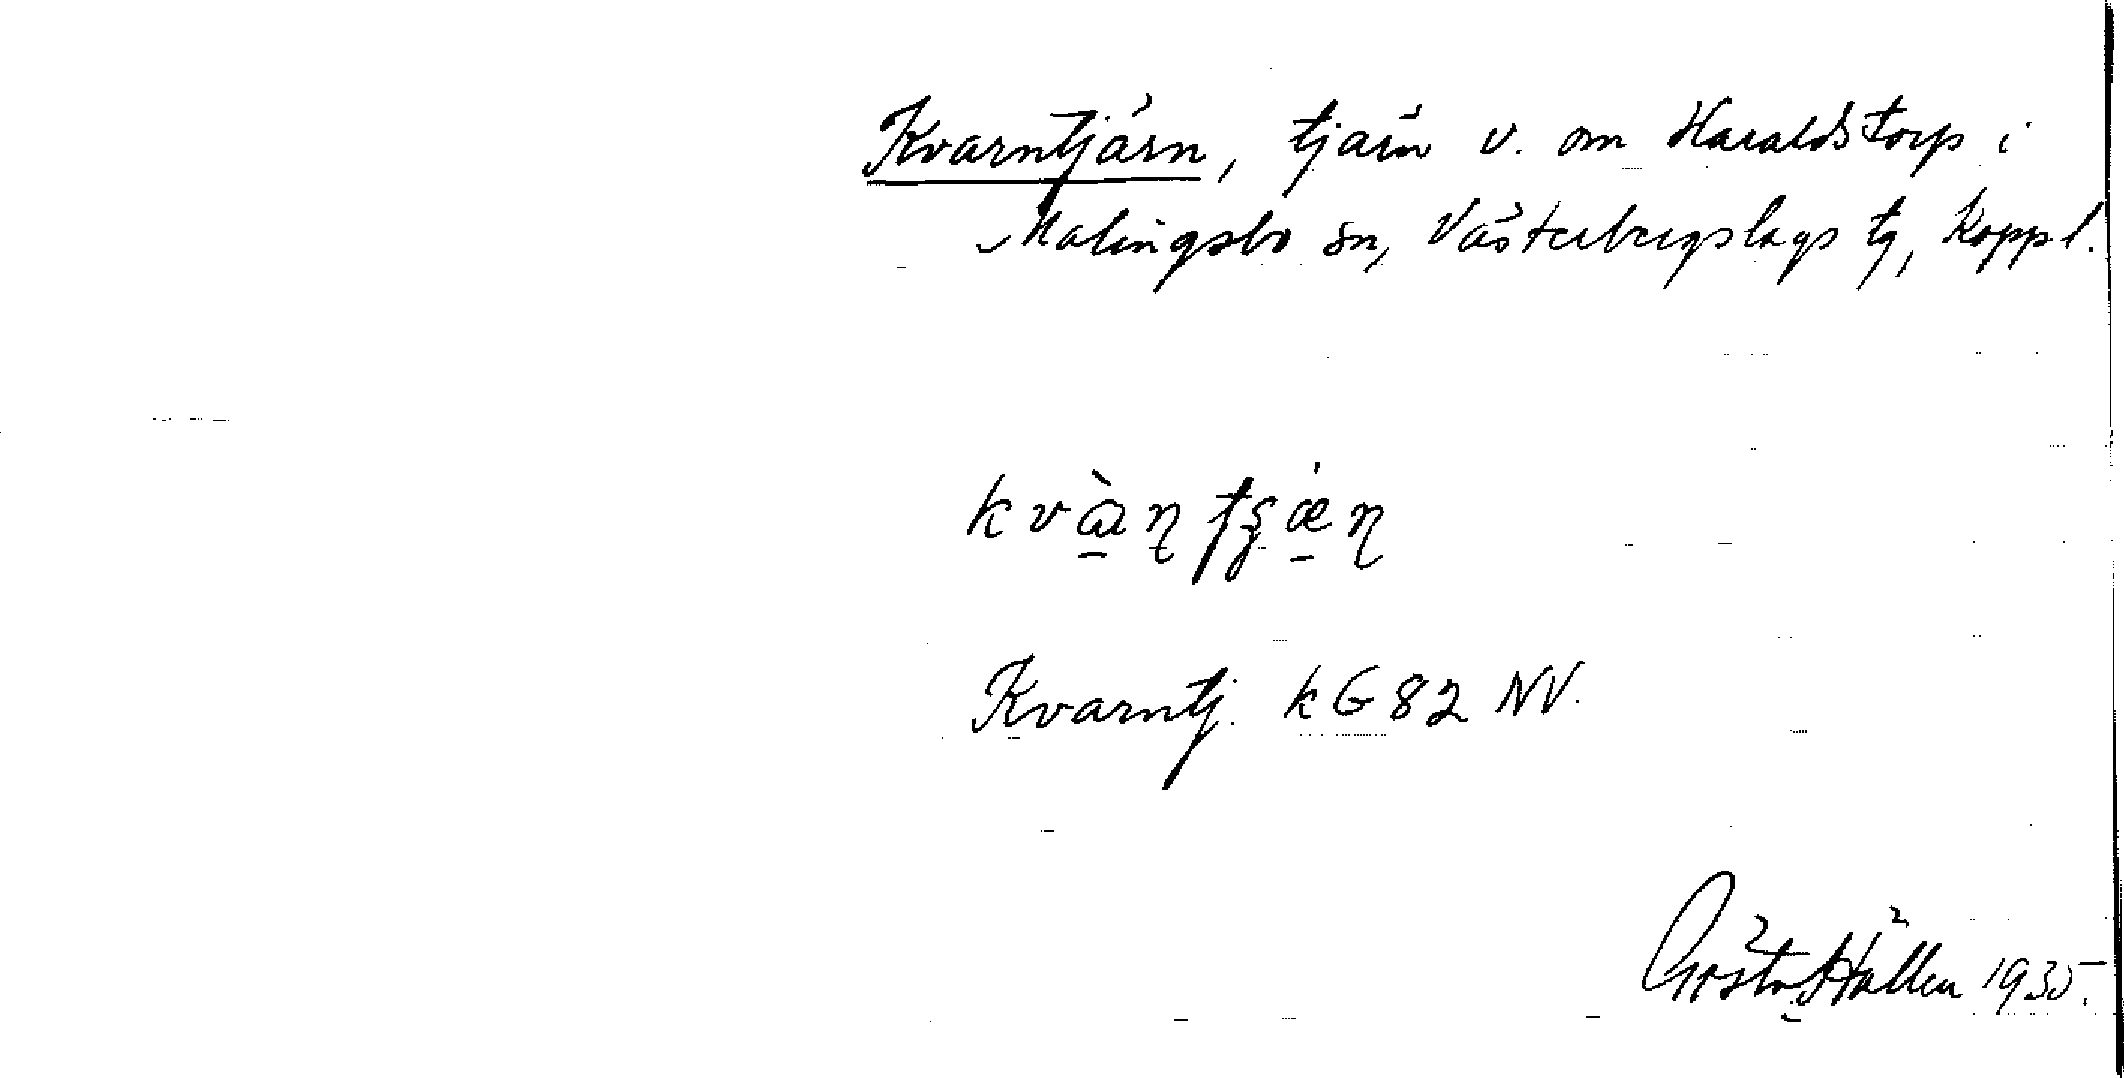 Kvarntjärn, tjärn v. om Haraldstorp i
Malingsbo sn, Västerbergslags tg, Koppl.
kvɑ̱̀ɳtʂǽ̱ɳ
Kvarntj. kG 82 NV.
Gösta Hällen 1935.